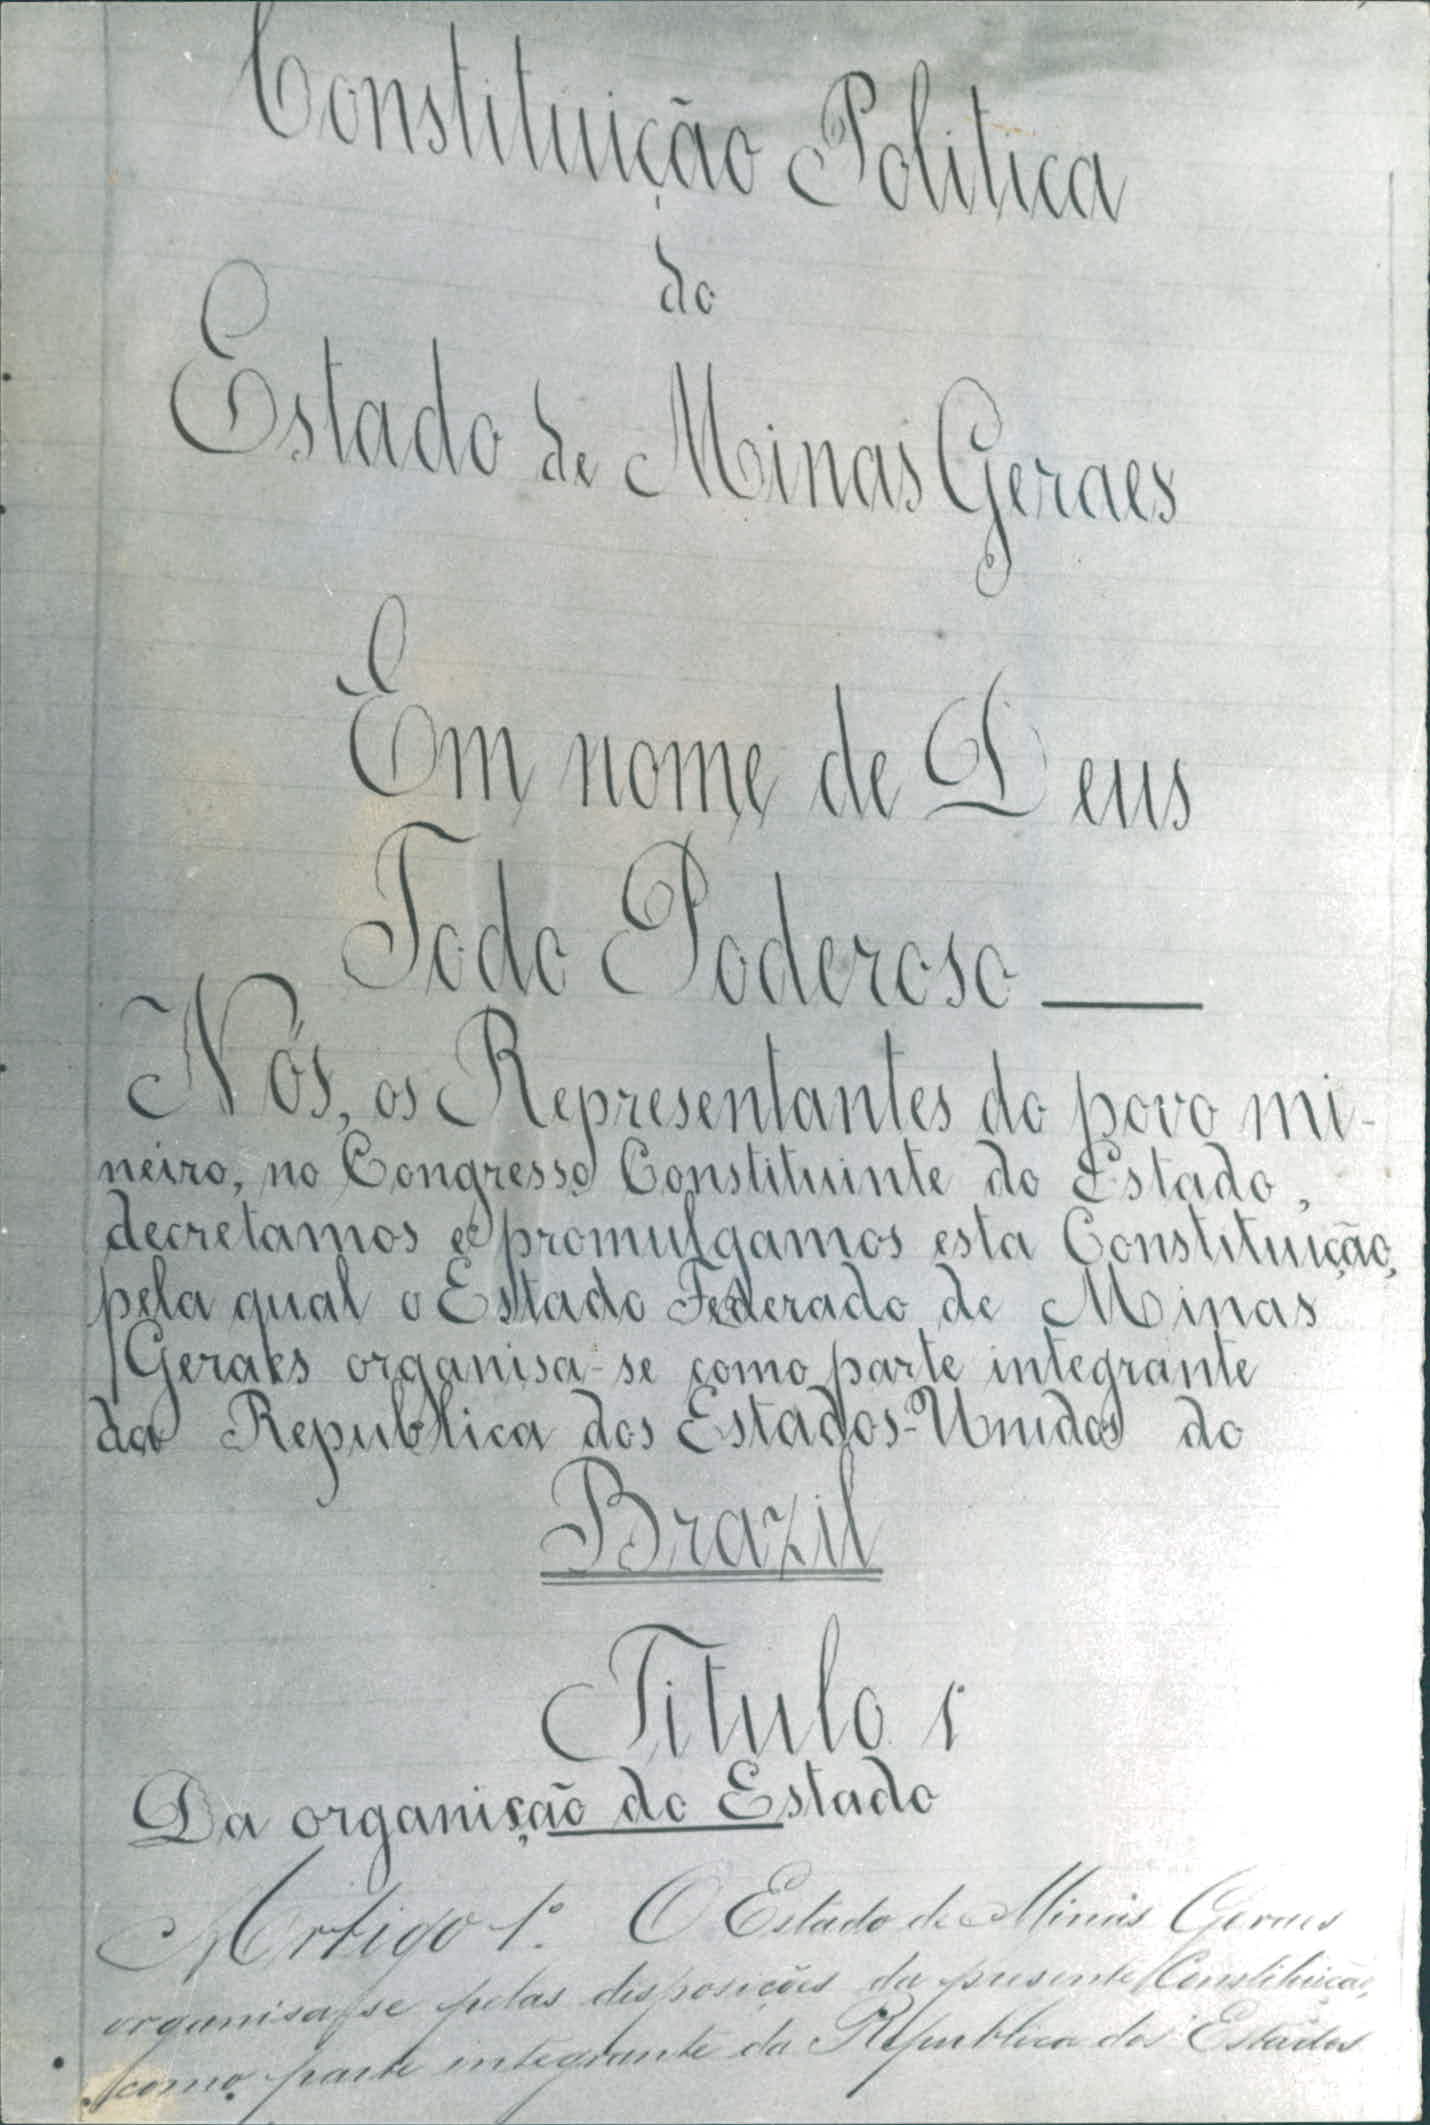 Constituição Politica
do
Estado de Minas Geraes
Em nome de Deus
Todo Poderoso —
Nós, os Representantes do povo mi-
neiro, no Congresso Constituinte do Estado,
decretamos e promulgamos esta Constituição,
pela qual o Estado Federado de Minas
Geraes organisa-se como parte integrante
da Republica dos Estados-Unidos do
Brazil
Titulo 1
Da organisção do Estado
Artigo 1º. O Estado de Minas Geraes
organisa-se pelas disposições da presente Constituição,
como parte integrante da Republica dos Estados